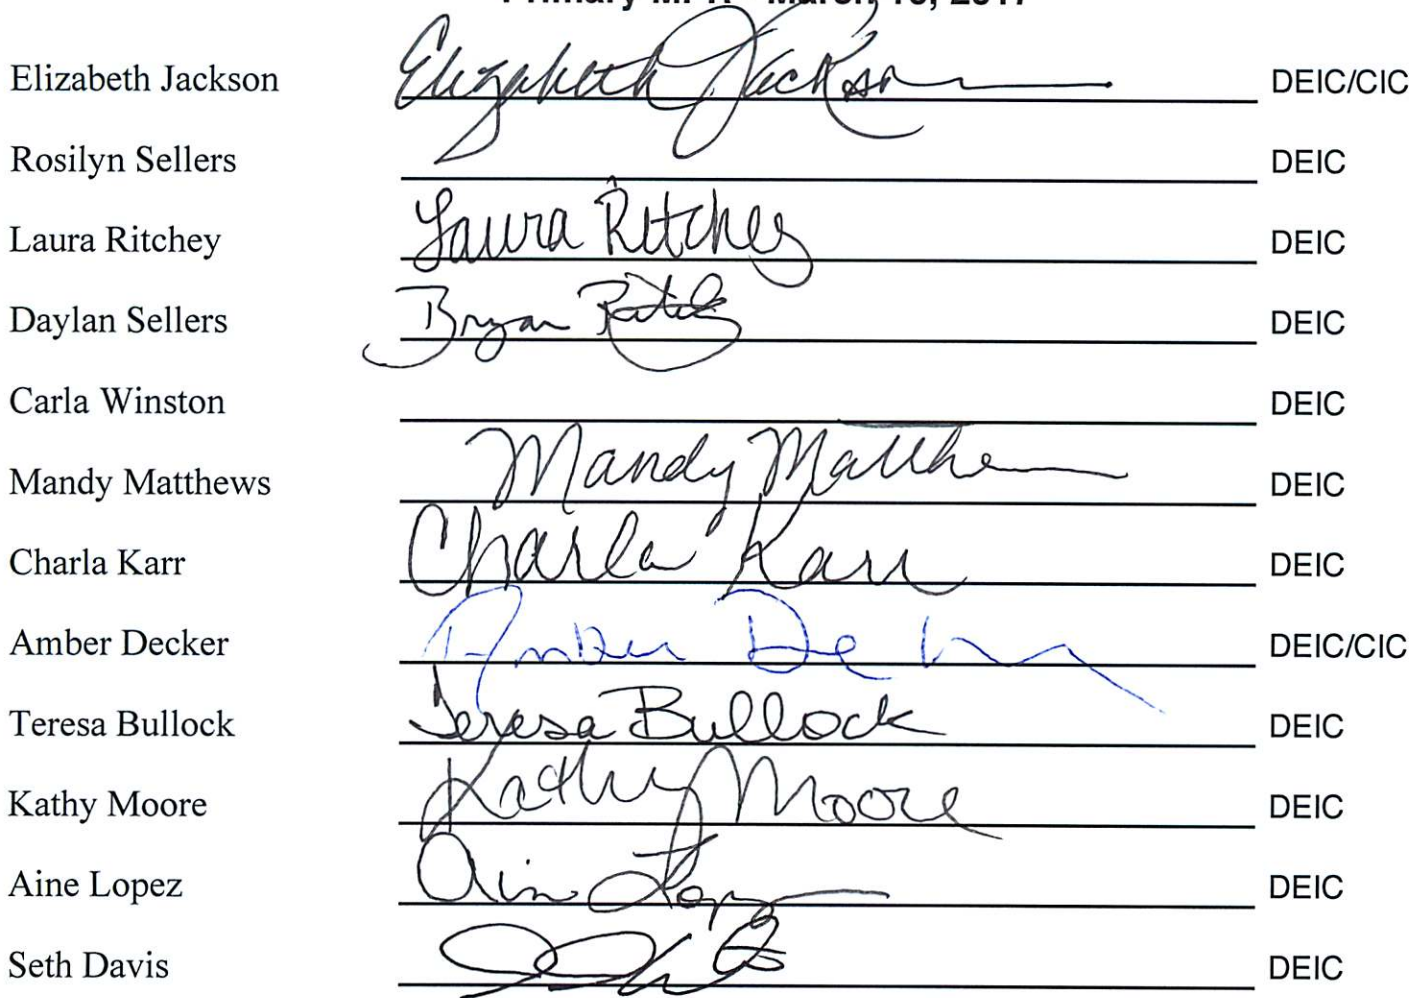 Elizabeth Jackson Elizabeth Jackson DEIC/CIC
Rosilyn Sellers DEIC
Laura Ritchey Laura Ritchey DEIC
Daylan Sellers Bryan DEIC
Carla Winston DEIC
Mandy Matthews Mandy Matthews DEIC
Charla Karr Charla Karr DEIC
Amber Decker Amber Decker DEIC/CIC
Teresa Bullock Teresa Bullock DEIC
Kathy Moore Kathy Moore DEIC
Aine Lopez Aine Lopez DEIC
Seth Davis DEIC